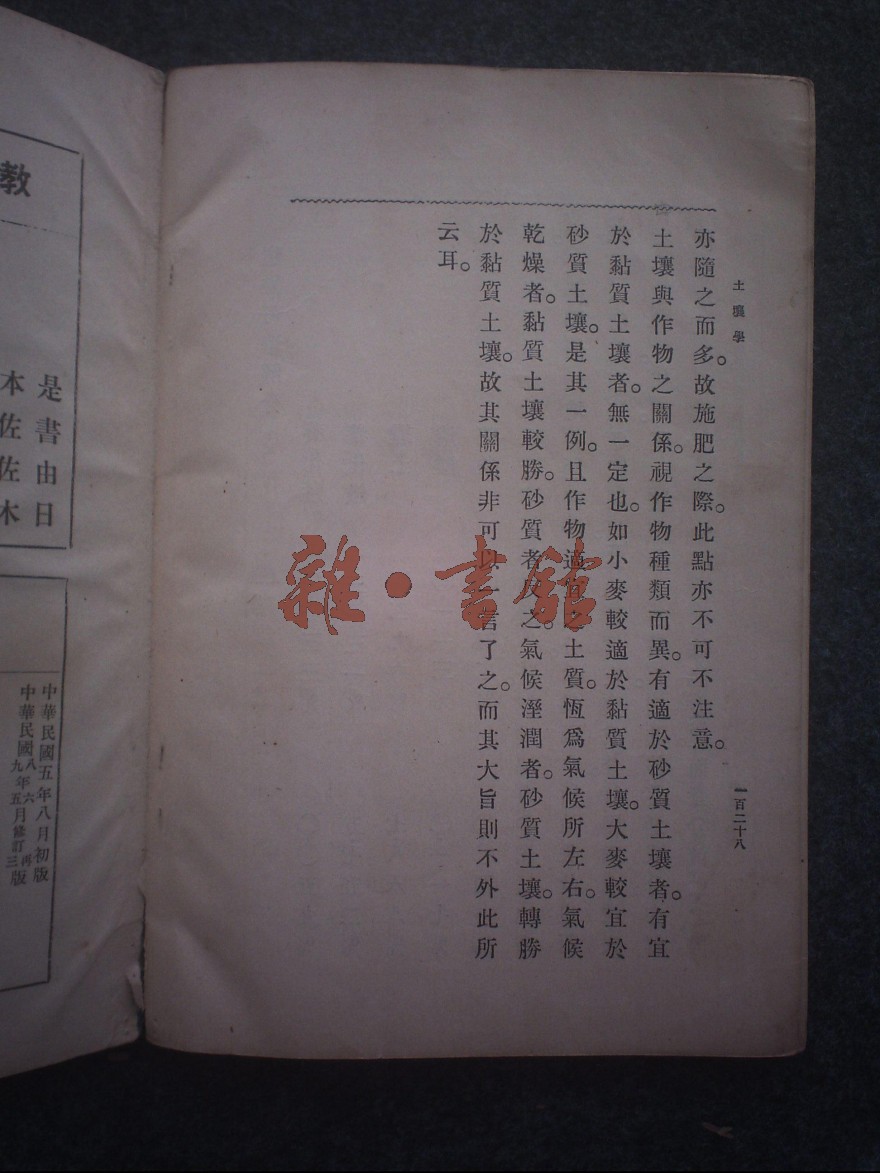 土壤學
一百二十八
亦隨之而多。故施肥之際。此點亦不可不注意。
土壤與作物之關係。視作物種類而異。有適於砂質土壤者。有宜
於黏質土壤者。無一定也。如小麥較適於黏質土壤。大麥較宜於
砂質土壤。是其一例。且作物適宜之土質。恆爲氣候所左右。氣候
乾燥者。黏質土壤較勝。砂質者次之。氣候溼潤者。砂質土壤。轉勝
於黏質土壤。故其關係非可以一言了之。而其大旨則不外此所
云耳。
雜·書館
教
是書由日
本佐佐木
中華民國五年八月初版
中華民國八年六月再版
九年五月修訂三版